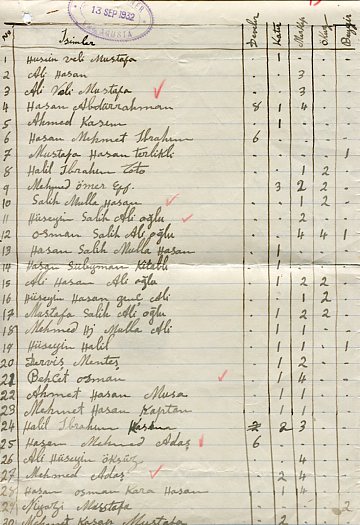 13 SEP 1932
No İsimler Develer Katır Merkep Öküz Beygir
1 Husein Veli Mustafa . 1 . . .
2 Ali Hasan . . 3 . .
3 Ali Veli Mustafa . . 3 . .
4 Hasan Abdurrahman 8 1 4 . .
5 Ahmed Kasım . 1 . . .
6 Hasan Mehmet Ibrahim 6 . . . .
7 Mustafa Hasan terlikli . . . . 1
8 Halil Ibrahim Toto . . 1 2 .
9 Mehmed ömer Eff. . 3 2 2 .
10 Salih Mulla Hasan . . 1 2 .
11 Hüseyin Salih Ali oğlu . . 2 . .
12 Osman Salih Ali oğlu . . 4 4 1
13 Hasan Salih Mulla Hasan . 1 . . .
14 Hasan Süleyman . 1 . . .
15 Ali Hasan Ali oğlu . 1 2 2
16 Hüseyin Hasan Ali . . 1 2
17 Mustafa Salih Ali oğlu . 1 2 2
18 Mehmed Hj Mulla Ali . 1 1 .
19 Hüseyin Halil . 1 1 . 1
20 Derviş Menteş . 1 2 .
21 Behçet Osman . 1 4 .
22 Ahmet Hasan Musa . 1 1 .
23 Mehmet Hasan Kaptan . 1 1 .
24 Halil Ibrahim 2 3
25 Hasan Mehmed Adaş 6 . . .
26 Ali Hüseyin . . 4 .
27 Mehmed Adaş . 2 4 .
28 Hasan Osman Kara Hasan . 1 4 .
29 Niyazi Mustafa . . . . 2
30 Mehmet Hasan Mustafa 2